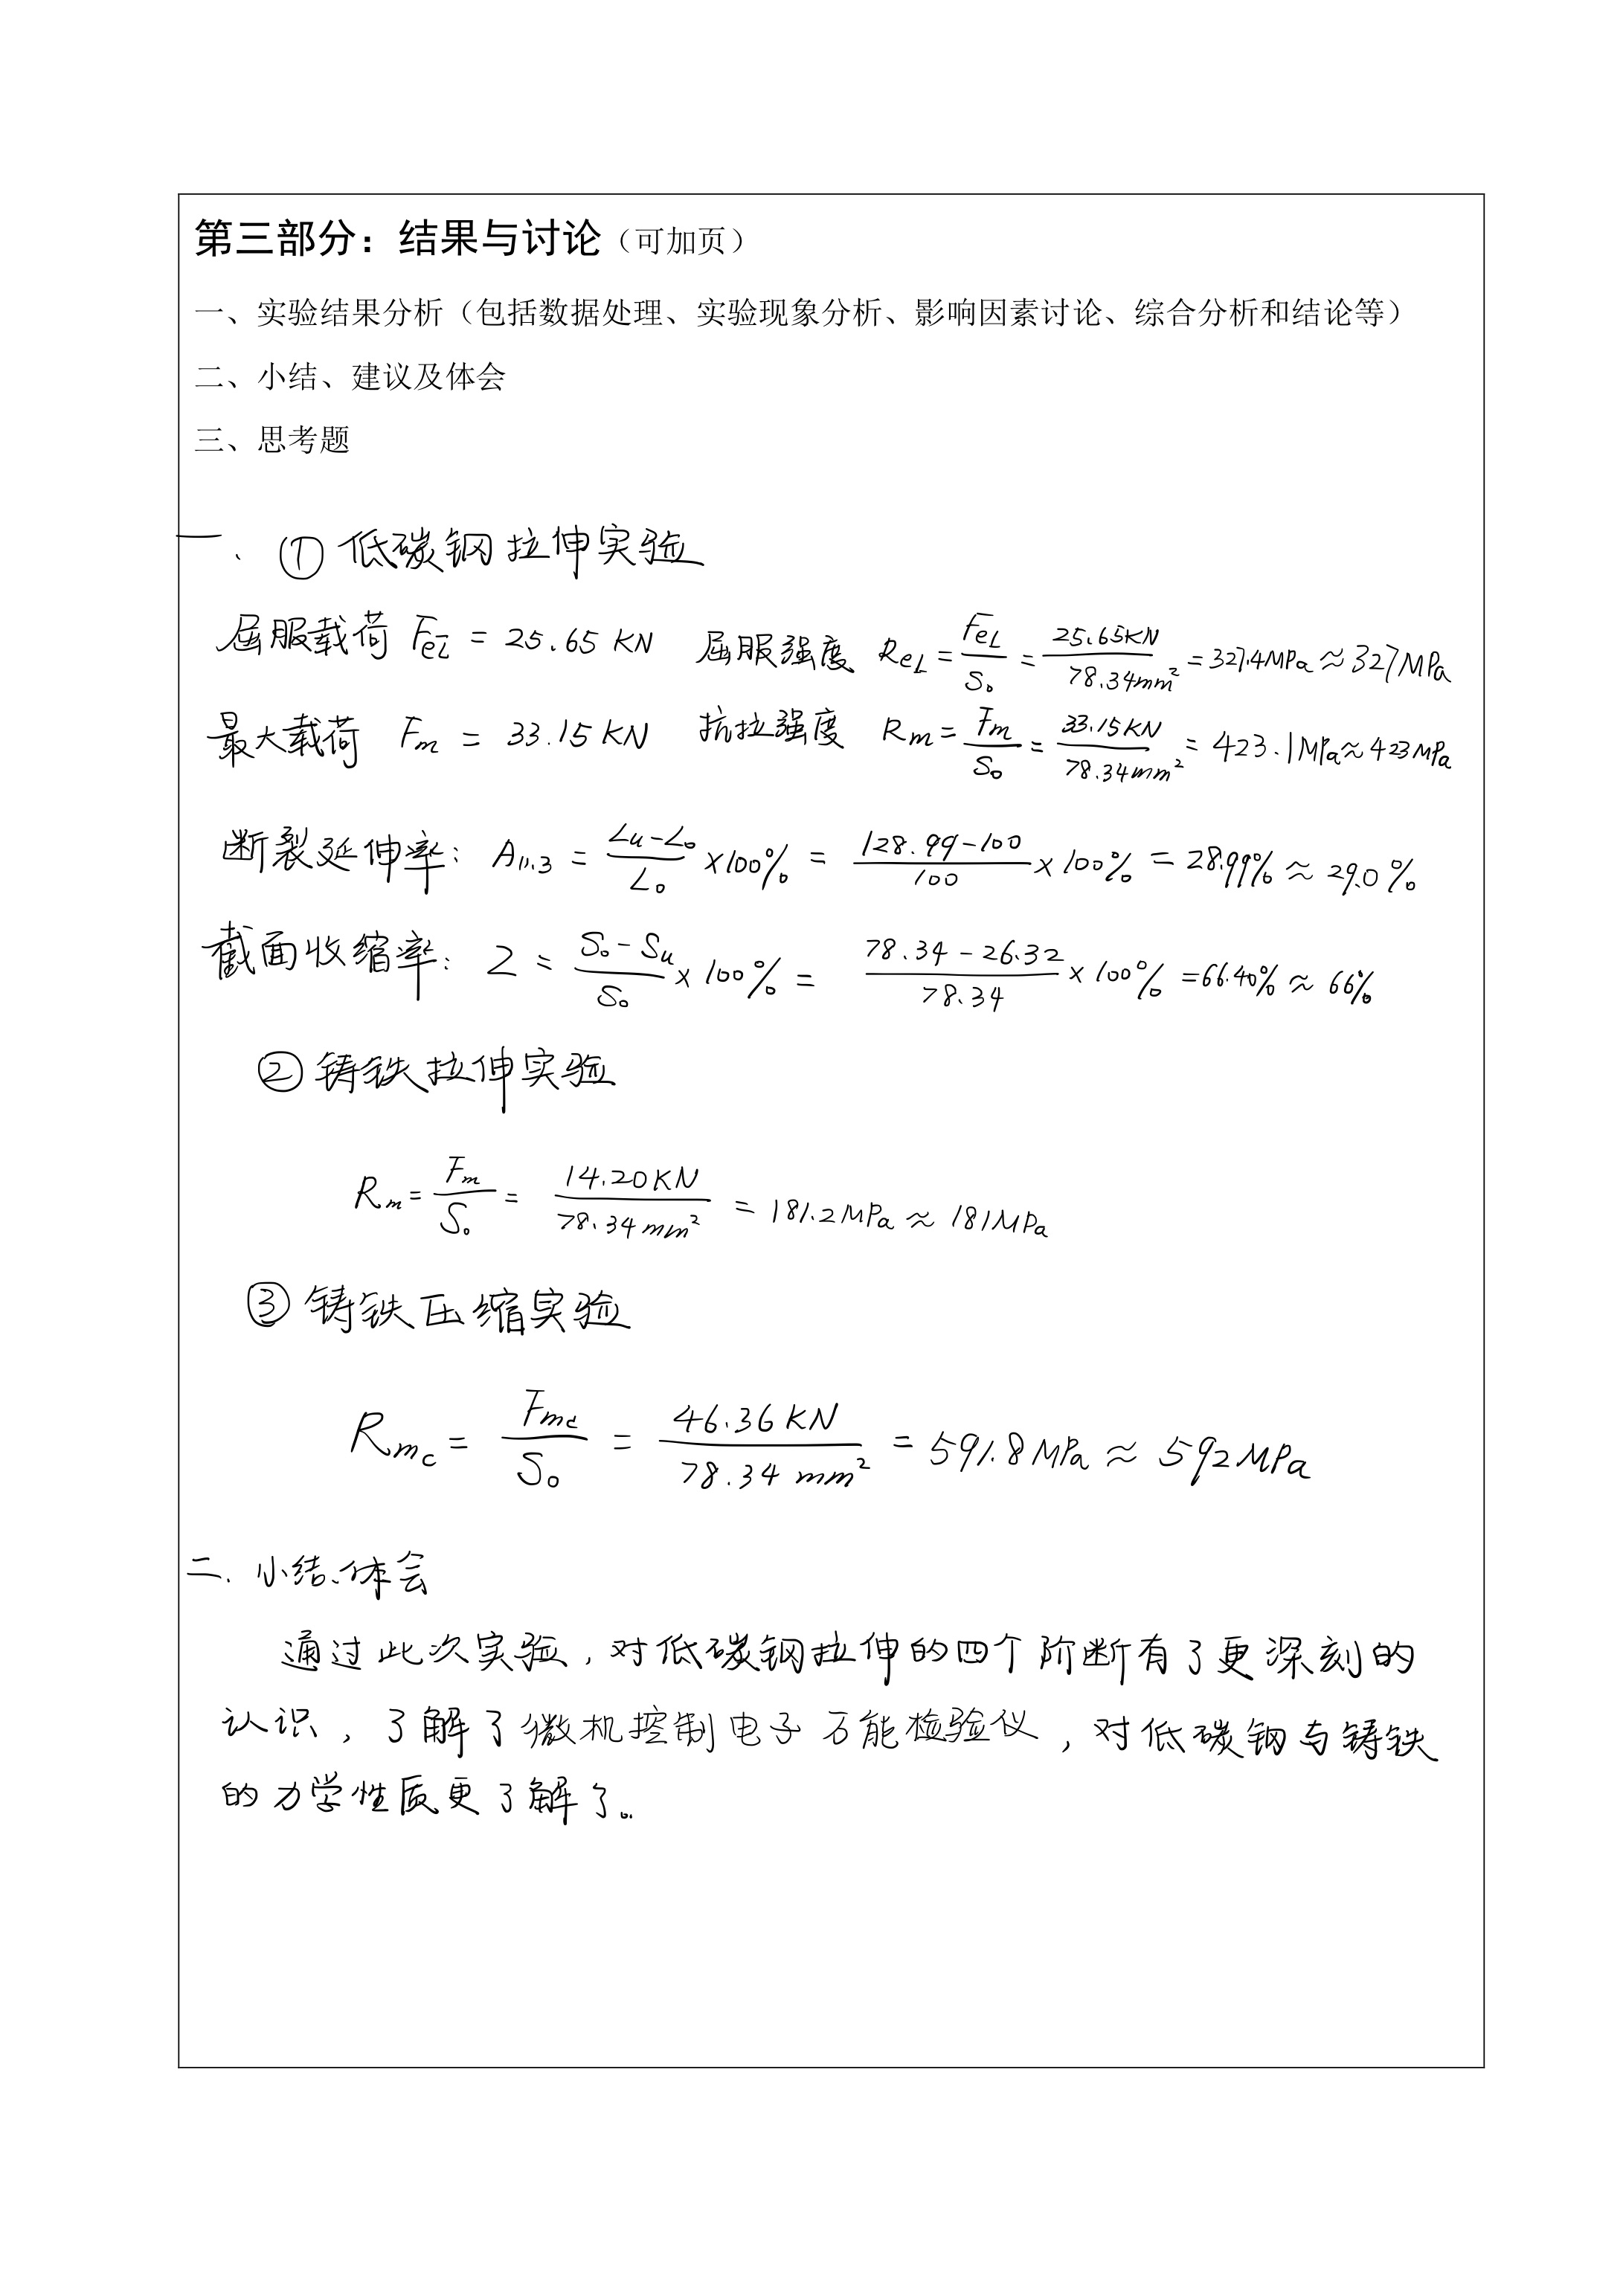 第三部分：结果与讨论（可加页）
一、实验结果分析（包括数据处理、实验现象分析、影响因素讨论、综合分析和结论等）
二、小结、建议及体会
三、思考题
一、①低碳钢拉伸实验
屈服载荷 FeL = 25.65 KN 屈服强度 ReL = FeL/S₀ = 25.65KN/78.34mm² = 327.4MPa ≈ 327MPa
最大载荷 Fm = 33.15 KN 抗拉强度 Rm = Fm/S₀ = 33.15KN/78.34mm² = 423.1MPa ≈ 423MPa
断裂延伸率： A11.3 = Lu-L₀/L₀ ×100% = 128.99-100/100 ×100% = 28.99% ≈ 29.0%
截面收缩率： Z = S₀-Su/S₀ ×100% = 78.34-26.32/78.34 ×100% = 66.40% ≈ 66%
②铸铁拉伸实验
Rm = Fm/S₀ = 14.20KN/78.34mm² = 181.2MPa ≈ 181MPa
③铸铁压缩实验
Rmc = Fmc/S₀ = 46.36KN/78.34mm² = 591.8MPa ≈ 592MPa
二. 小结、体会
通过此次实验，对低碳钢拉伸的四个阶断有了更深刻的
认识，了解了微机控制电子万能检验仪，对低碳钢与铸铁
的力学性质更了解了。